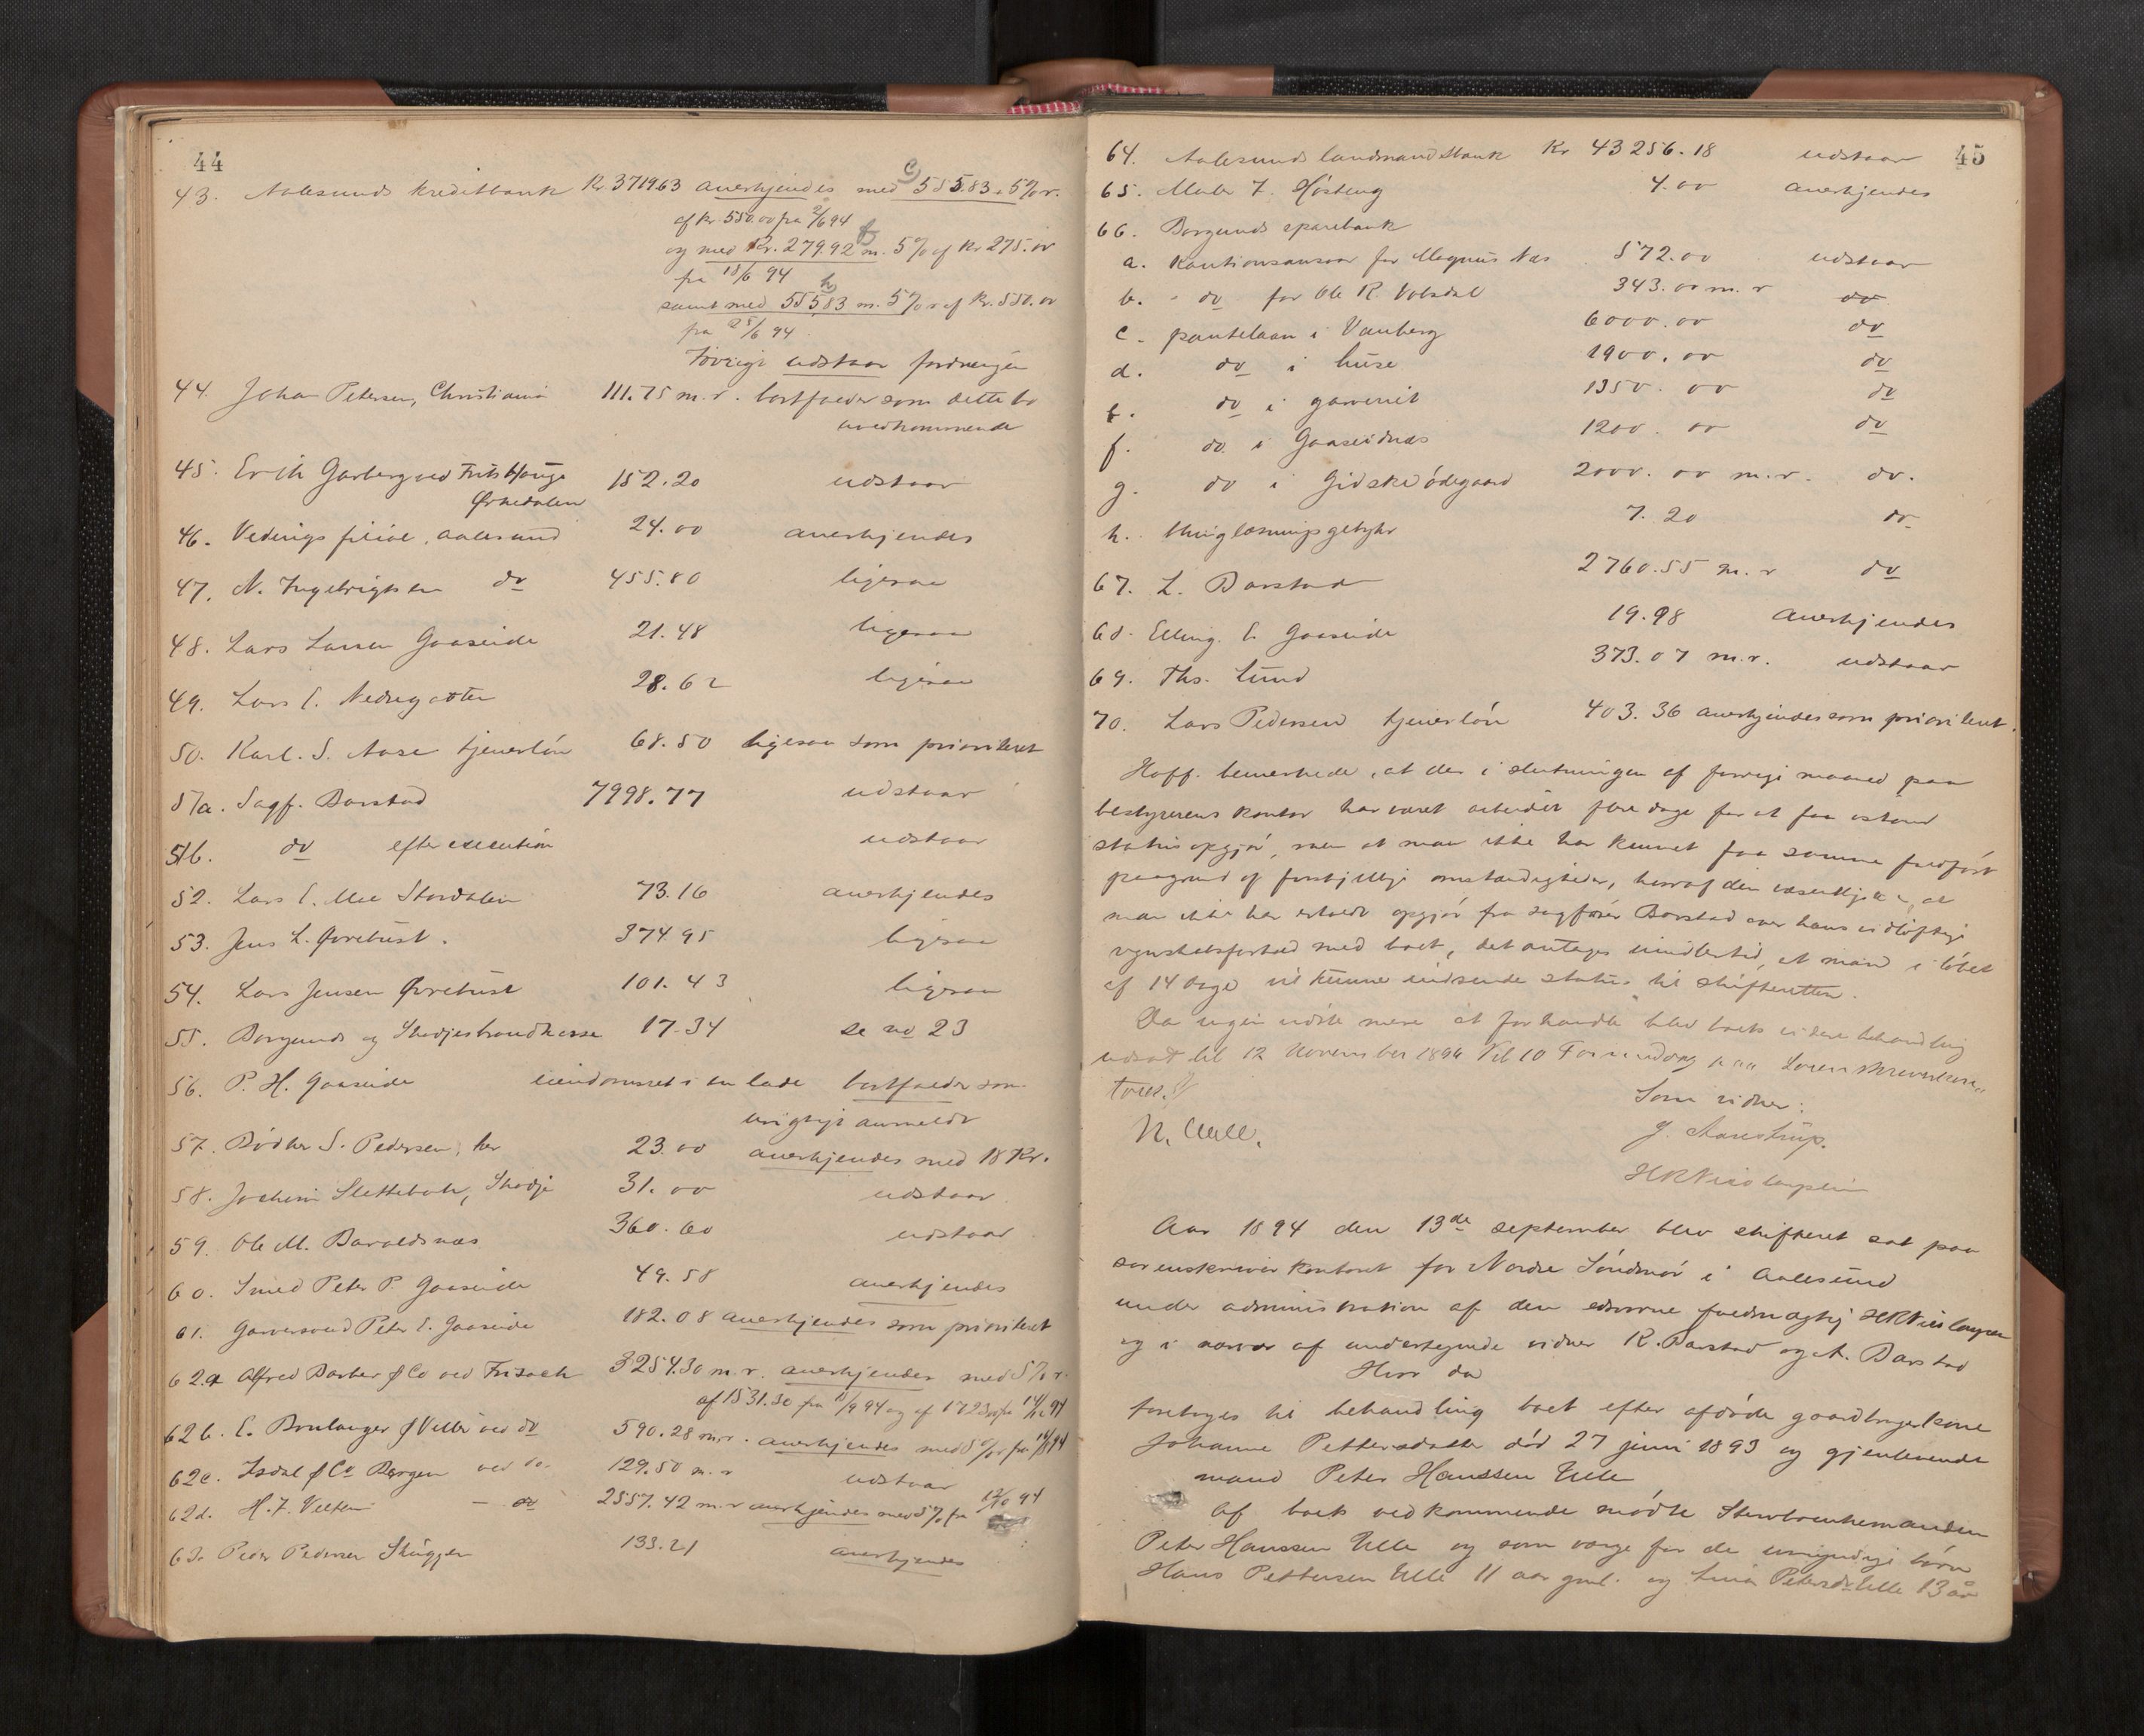 44
43. Aalesunds kreditbank Kr. 3719.63 anerkjendes med 555.83 . 5% r.
af kr. 550.00 fra 2/6 94
og med Kr. 279.92 m. 5% af Kr 275.00
fra 18/6 94
samt med 555.83 m. 5% r af Kr. 550.00
fra 25/6 94.
Iøvrigt udstaar fordringen
44. Johan Petersen, Christiania 111.75 m. r. bortfalder som dette bo
uvedkommende
45. Erik Garberg ved Frits Hauge
Ørkedalen 152.20 udstaar
46. Vedings filial, Aalesund 24.00 anerkjendes
47. N. Ingebrigtsen do 455.80 ligesaa
48. Lars Larsen Gaaseide 21.48 ligesaa
49. Lars E. Nedregotten 28.62 ligesaa
50. Karl. S. Aase tjenerløn 68.50 ligesaa som prioriteret
51a. Sagf. Barstad 7998.77 udstaar
51b. do efter execution udstaar
52. Lars E. Mee Stordalen 73.16 anerkjendes
53. Jens L. Øvrebust. 374.95 ligesaa
54. Lars Jensen Øvrebust 101.43 ligesaa
55. Borgunds og Skodjes brandkasse 17.34 se no 23
56. P. H. Gaaseide eiendomsret i en lade bortfalder som
urigtigt anmeldt
57. Bødker S. Pedersen, her 23.00 anerkjendes med 18 Kr.
58. Jochim Slettebak, Skodje 31.00 udstaar
59. Ole M. Barvoldsnæs 360.60 udstaar
60. Smed Peter P. Gaaseide 49.58 anerkjendes
61. Garversvend Peter E. Gaaseide 182.08 anerkjendes som prioriteret
62.a Alfred Barber & Co ved Frisack 3254.30 m. r. anerkjendes med 5% r.
af 1531.30 fra
62b. C. Boulanger & Ville ved do 590.28 m.r. anerkjendes med 5% r fra
62c. Isdal & Co Bergen ved do. 129.50 m. r udstaar
62d. H. F. Velten - do 2557.42 m. r anerkjendes med 5% fra 12/10 94
63. Peder Pedersen Skuggen 133.21 anerkjendes
45
64. Aalesunds landmandsbank Kr 43256.18 udstaar
65. Maler J. Høsteng 4.00 anerkjendes
66. Borgunds sparebank
a. Kautionsansvar for Magnus Næs 572.00 udstaar
b. - do for Ole R. Valsdal 343.00 m. r do
c. pantelaan i Vanberg 6000.00 do
d. do i huse 1900.00 do
e. do i garveriet 1350.00 do
f. do i Gaaseidnæs 1200.00 do
g. do i Gidskeødegaard 2000.00 m. r. do.
h. thinglæsningsgebyhr 7.20 do
67. L. Barstad 2760.55 m. r do
68. Elling. E. Gaaseide 19.98 anerkjendes
69. Ths. Lund 373.07 m.r. udstaar
70. Lars Pedersen tjenerløn 403.36 anerkjendes som prioriteret.
Hoff. bemerkede, at der i slutningen af forrige maaned paa
bestyrerens kontor har været arbeidet flere dage for at faa istand
statusopgjør, men at man ikke har kunnet faa samme fuldført
paagrund af forskjellige omstændigheder, hvoraf den væsentligste er, at
man ikke har erholdt opgjør fra sagfører Barstad over hans vidløftige
regnskabsforhold med boet, det antages imidlertid, at man i løbet
af 14 dage vil kunne indsende status til skifteretten.
Da ingen vidste mere at forhandle blev boets videre behandling
udsat til 12 November 1894 Kl 10 Formiddag paa Sorenskriverkon-
toret.
N. Uelle.
Som vidner:
J. Aarestrup.
HRNicolaysen
Aar 1894 den 13de september blev skifteret sat paa
sorenskriverkontoret for Nordre Søndmør i Aalesund
under administration af den edsvorne fuldmægtig HRNicolaysen
og i nærvær af undertegnede vidner K. Barstad og A. Barstad
Hvor da
foretoges til behandling boet efter afdøde gaardbrugerkone
Johanne Pettersdatter død 27 juni 1893 og gjenlevende
mand Peter Hanssen Uelle
Af boets vedkommende mødte Stervboenkemanden
Peter Hanssen Uelle og som værge for de umyndige børn
Hans Pettersen Uelle 11 aar gml. og Lina Petersdr Uelle 13 aar